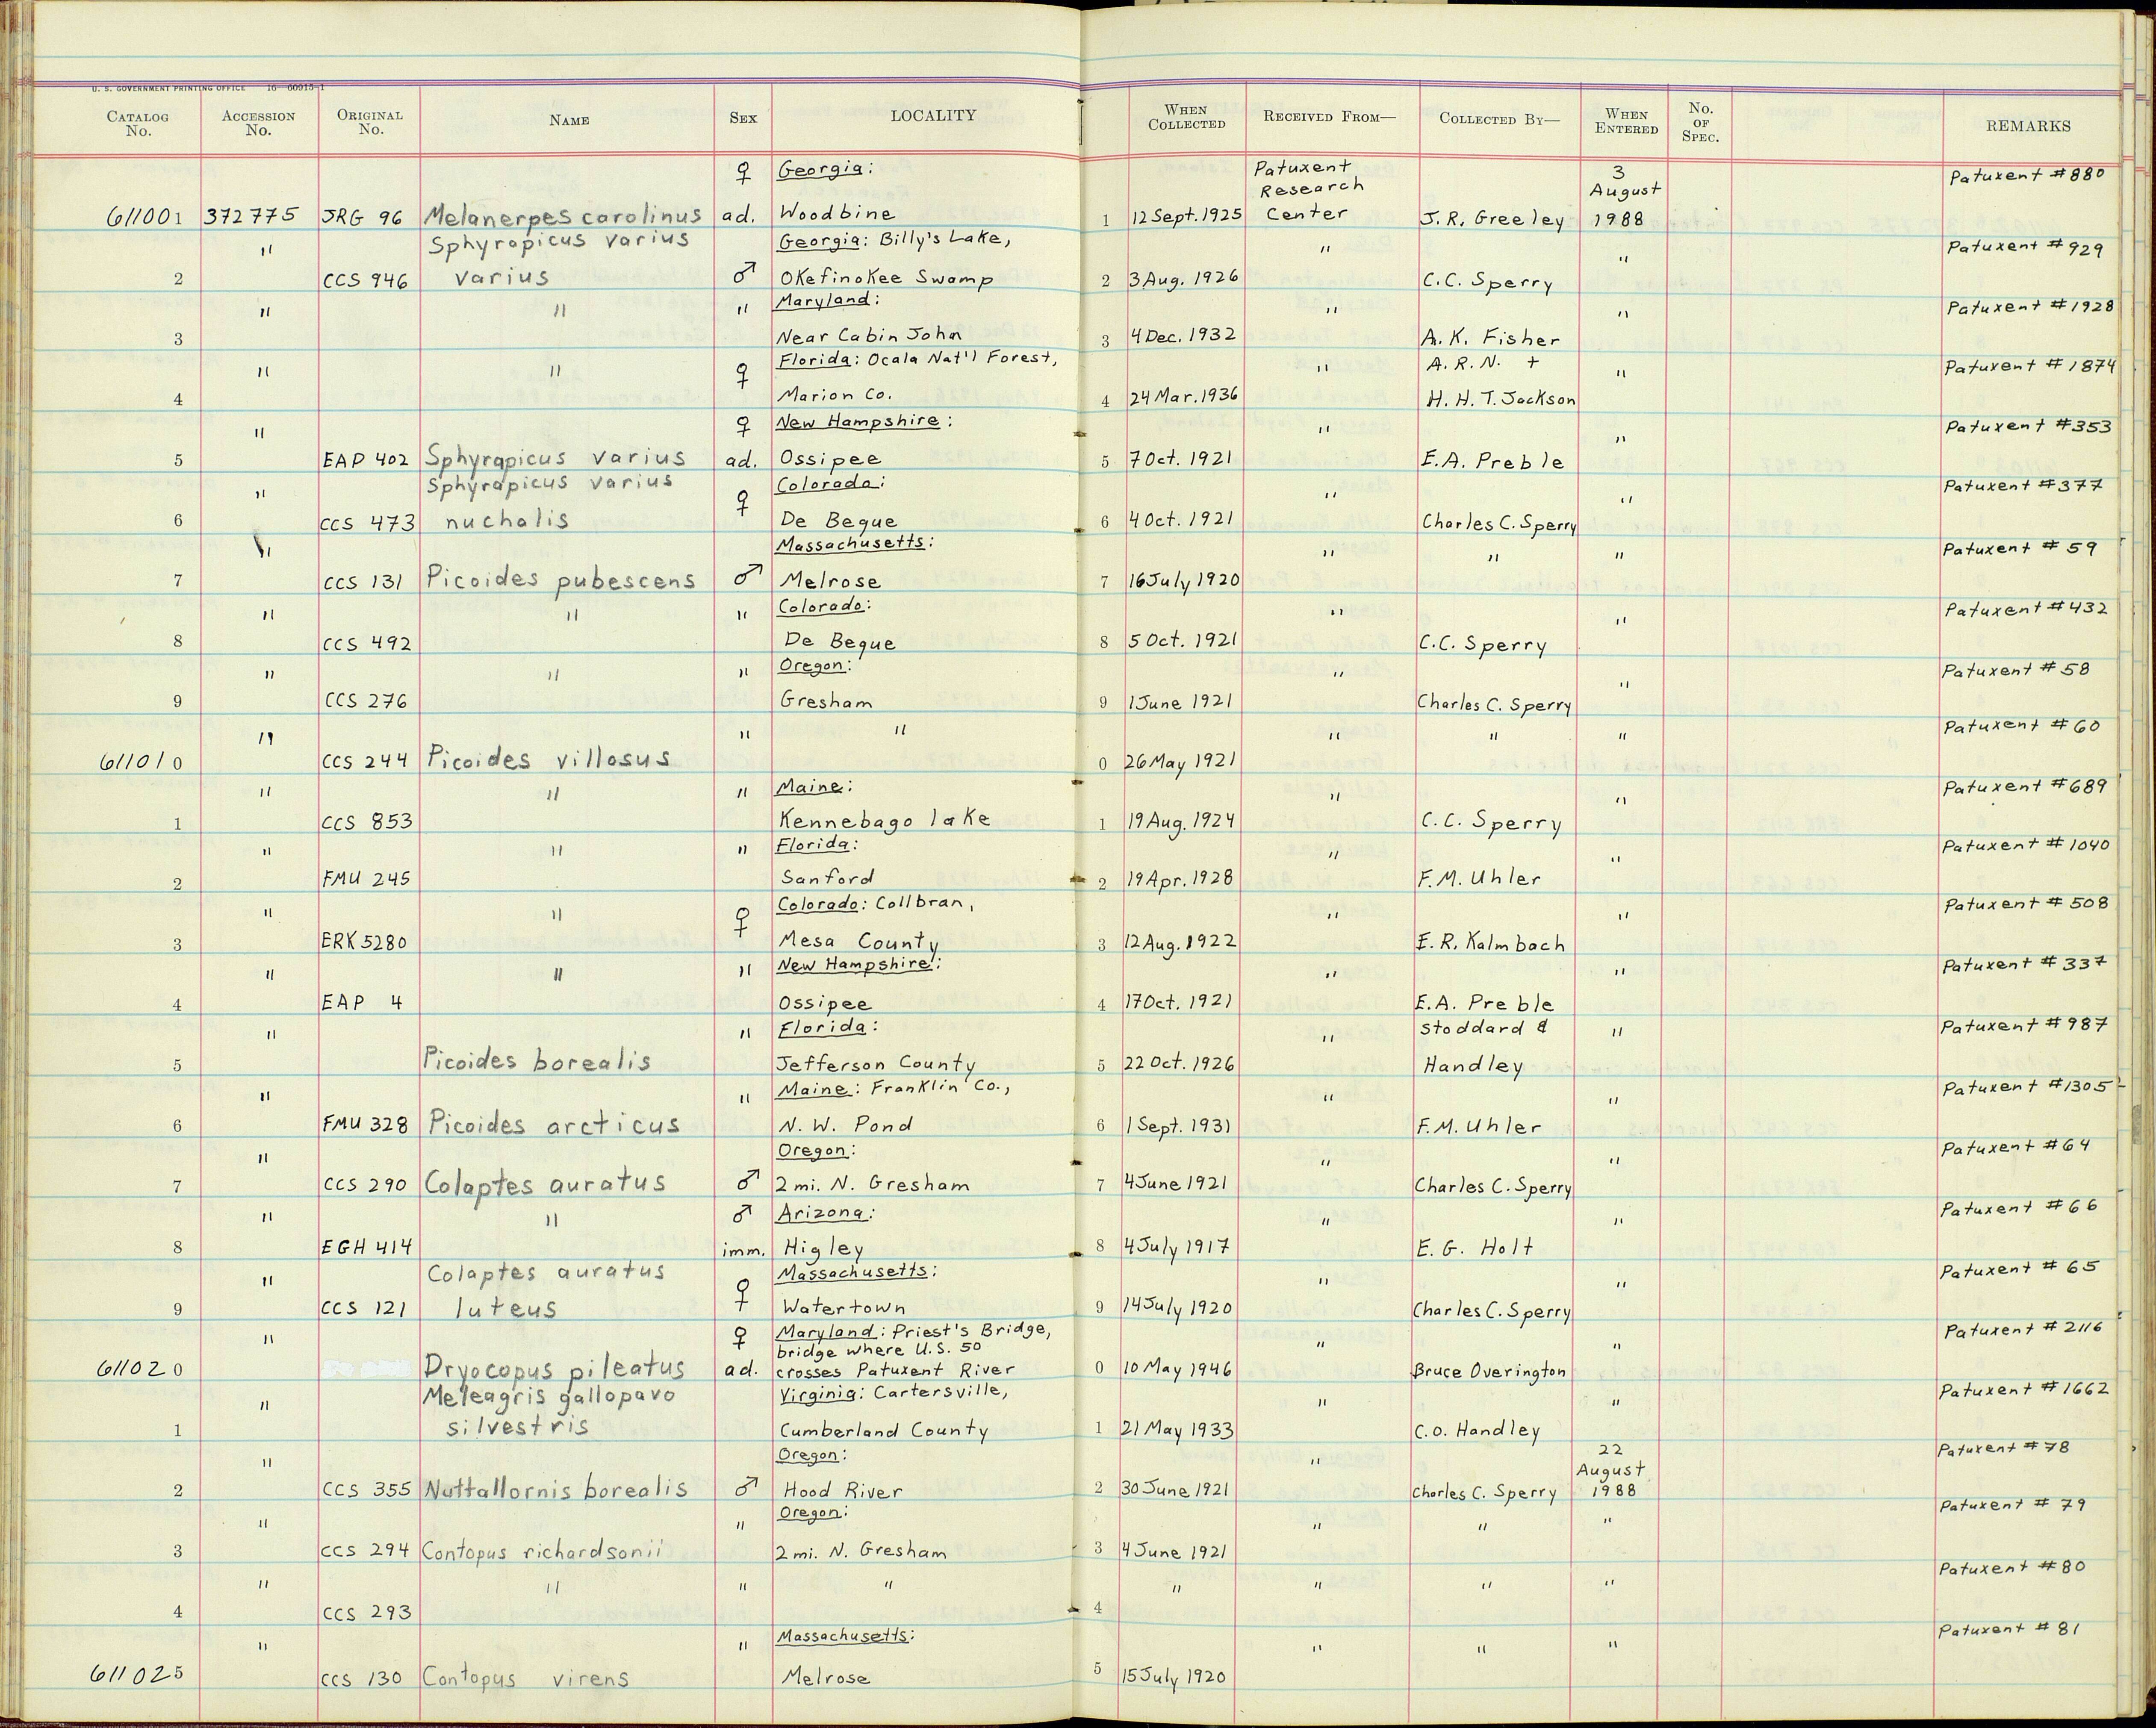 U. S. GOVERNMENT PRINTING OFFICE 16—60915-1
CATALOG No. ACCESSION No. ORIGINAL No. NAME SEX LOCALITY WHEN COLLECTED RECEIVED FROM— COLLECTED BY— WHEN ENTERED No. OF SPEC. REMARKS
♀ Georgia: Patuxent 3 Patuxent #880
Research August
611001 372775 JRG 96 Melanerpes carolinus ad. Woodbine 1 12 Sept. 1925 Center J.R. Greeley 1988
" Sphyrapicus varius Georgia: Billy's Lake, " " Patuxent #929
2 CCS 946 varius ♂ Okefinokee Swamp 2 3 Aug. 1926 C.C. Sperry
" " " Maryland: " " Patuxent #1928
3 Near Cabin John 3 4 Dec. 1932 A.K. Fisher
" " ♀ Florida: Ocala Nat'l Forest, " A.R.N. + " Patuxent #1874
4 Marion Co. 4 24 Mar. 1936 H.H.T. Jackson
" ♀ New Hampshire: " " Patuxent #353
5 EAP 402 Sphyrapicus varius ad. Ossipee 5 7 Oct. 1921 E.A. Preble
" Sphyrapicus varius ♀ Colorado: " " Patuxent #377
6 CCS 473 nuchalis De Beque 6 4 Oct. 1921 Charles C. Sperry
" Massachusetts: " " " Patuxent #59
7 CCS 131 Picoides pubescens ♂ Melrose 7 16 July 1920
" " " Colorado: " " Patuxent #432
8 CCS 492 De Beque 8 5 Oct. 1921 C.C. Sperry
" " " Oregon: " " Patuxent #58
9 CCS 276 Gresham 9 1 June 1921 Charles C. Sperry
" " " " " " Patuxent #60
611010 CCS 244 Picoides villosus 0 26 May 1921
" " " Maine: " " Patuxent #689
1 CCS 853 Kennebago lake 1 19 Aug. 1924 C.C. Sperry
" " " Florida: " " Patuxent #1040
2 FMU 245 Sanford 2 19 Apr. 1928 F.M. Uhler
" " ♀ Colorado: Collbran, " " Patuxent #508
3 ERK 5280 Mesa County 3 12 Aug. 1922 E.R. Kalmbach
" " " New Hampshire: " " Patuxent #337
4 EAP 4 Ossipee 4 17 Oct. 1921 E.A. Preble
" " Florida: " Stoddard & " Patuxent #987
5 Picoides borealis Jefferson County 5 22 Oct. 1926 Handley
" " Maine: Franklin Co., " " Patuxent #1305
6 FMU 328 Picoides arcticus N.W. Pond 6 1 Sept. 1931 F.M. Uhler
" Oregon: " " Patuxent #64
7 CCS 290 Colaptes auratus ♂ 2 mi. N. Gresham 7 4 June 1921 Charles C. Sperry
" " ♂ Arizona: " " Patuxent #66
8 EGH 414 imm. Higley 8 4 July 1917 E.G. Holt
" Colaptes auratus ♀ Massachusetts: " " Patuxent #65
9 CCS 121 luteus Watertown 9 14 July 1920 Charles C. Sperry
" ♀ Maryland: Priest's Bridge, " " Patuxent #2116
bridge where U.S. 50
611020 Dryocopus pileatus ad. crosses Patuxent River 0 10 May 1946 Bruce Overington
" Meleagris gallopavo Virginia: Cartersville, " " Patuxent #1662
1 silvestris Cumberland County 1 21 May 1933 C.O. Handley
" Oregon: " 22 Patuxent #78
August
2 CCS 355 Nuttallornis borealis ♂ Hood River 2 30 June 1921 Charles C. Sperry 1988
" " Oregon: " " " Patuxent #79
3 CCS 294 Contopus richardsonii 2 mi. N. Gresham 3 4 June 1921
" " " " " " " " Patuxent #80
4 CCS 293 4
" " Massachusetts: " " " Patuxent #81
611025 CCS 130 Contopus virens Melrose 5 15 July 1920